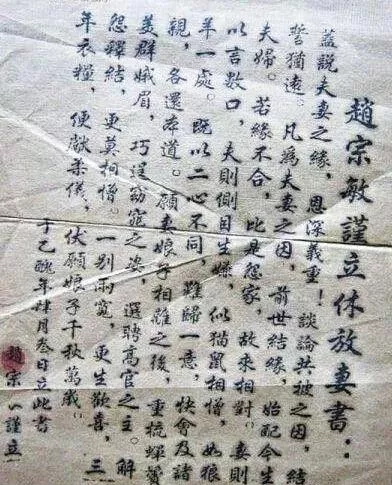 趙宗敏謹立休放妻書：
蓋說夫妻之緣，恩深義重！談論共被之因，結
誓猶遠。凡為夫妻之因，前世結緣，始配今生
夫婦。若緣不合，此是怨家，故來相對。妻則
以言數口，夫則側目生嫌，似猫鼠相憎，如狼
羊一處。既以二心不同，難歸一意，快會及諸
親，各還本道。願妻娘子相離之後，重梳蟬鬢
美群娥眉，巧逞窈窕之姿，選聘高官之主。解
怨釋結，更莫相憎。一別兩寬，更生歡喜，三
年衣糧，便獻柔儀，伏願娘子千秋萬歲。
于乙醜年肆月叁日立此書
趙宗謹立